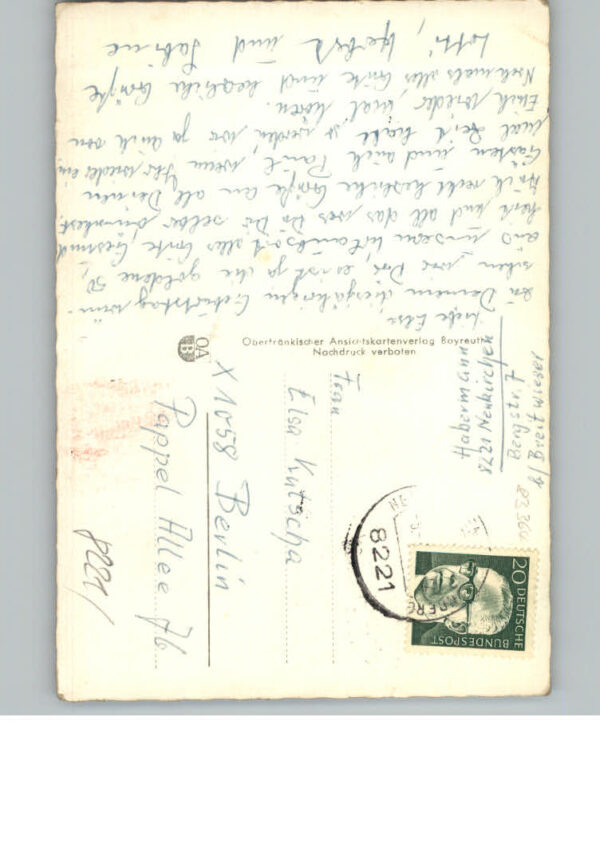 Liebe Else
Zu Deinem diesjährigen Geburtstag wün-
schen wir Dir, es ist ja die goldene 50,
aus unserm Urlaubsort alles Gute, Gesund
heit und all das was Du Dir selbst wünschest.
Auch recht herzliche Grüße an all Deinen
Gästen und auch Paul, wenn Ihr wieder ein
mal Zeit habt so werden wir ja auch von
Euch wieder mal hören.
Nochmals alles Gute und herzliche Grüße
Lotti, und Sabine
Oberfränkischer Ansichtskartenverlag Bayreuth
Nachdruck verboten
OA
B
Habermann
8221 Neukirchen
Bergstr. 7
b/ Breitwieser
Frau
Elsa Kutscha
X 1058 Berlin
Pappel Allee 76
8221
20 DEUTSCHE
BUNDESPOST
8221